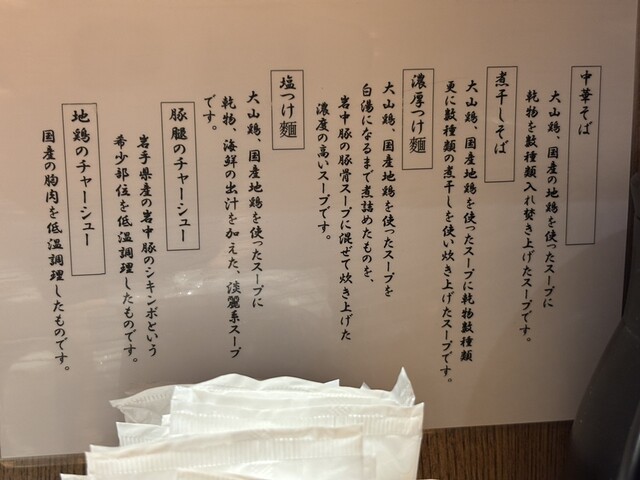 中華そば
大山鶏、国産の地鶏を使ったスープに
乾物を数種類入れ焚き上げたスープです。
煮干しそば
大山鶏、国産地鶏を使ったスープに乾物数種類
更に数種類の煮干しを使い炊き上げたスープです。
濃厚つけ麺
大山鶏、国産地鶏を使ったスープを
白湯になるまで煮詰めたものを、
岩中豚の豚骨スープに混ぜて炊き上げた
濃度の高いスープです。
塩つけ麺
大山鶏、国産地鶏を使ったスープに
乾物、海鮮の出汁を加えた、淡麗系スープ
です。
豚腿のチャーシュー
岩手県産の岩中豚のシキンボという
希少部位を低温調理したものです。
地鶏のチャーシュー
国産の胸肉を低温調理したものです。